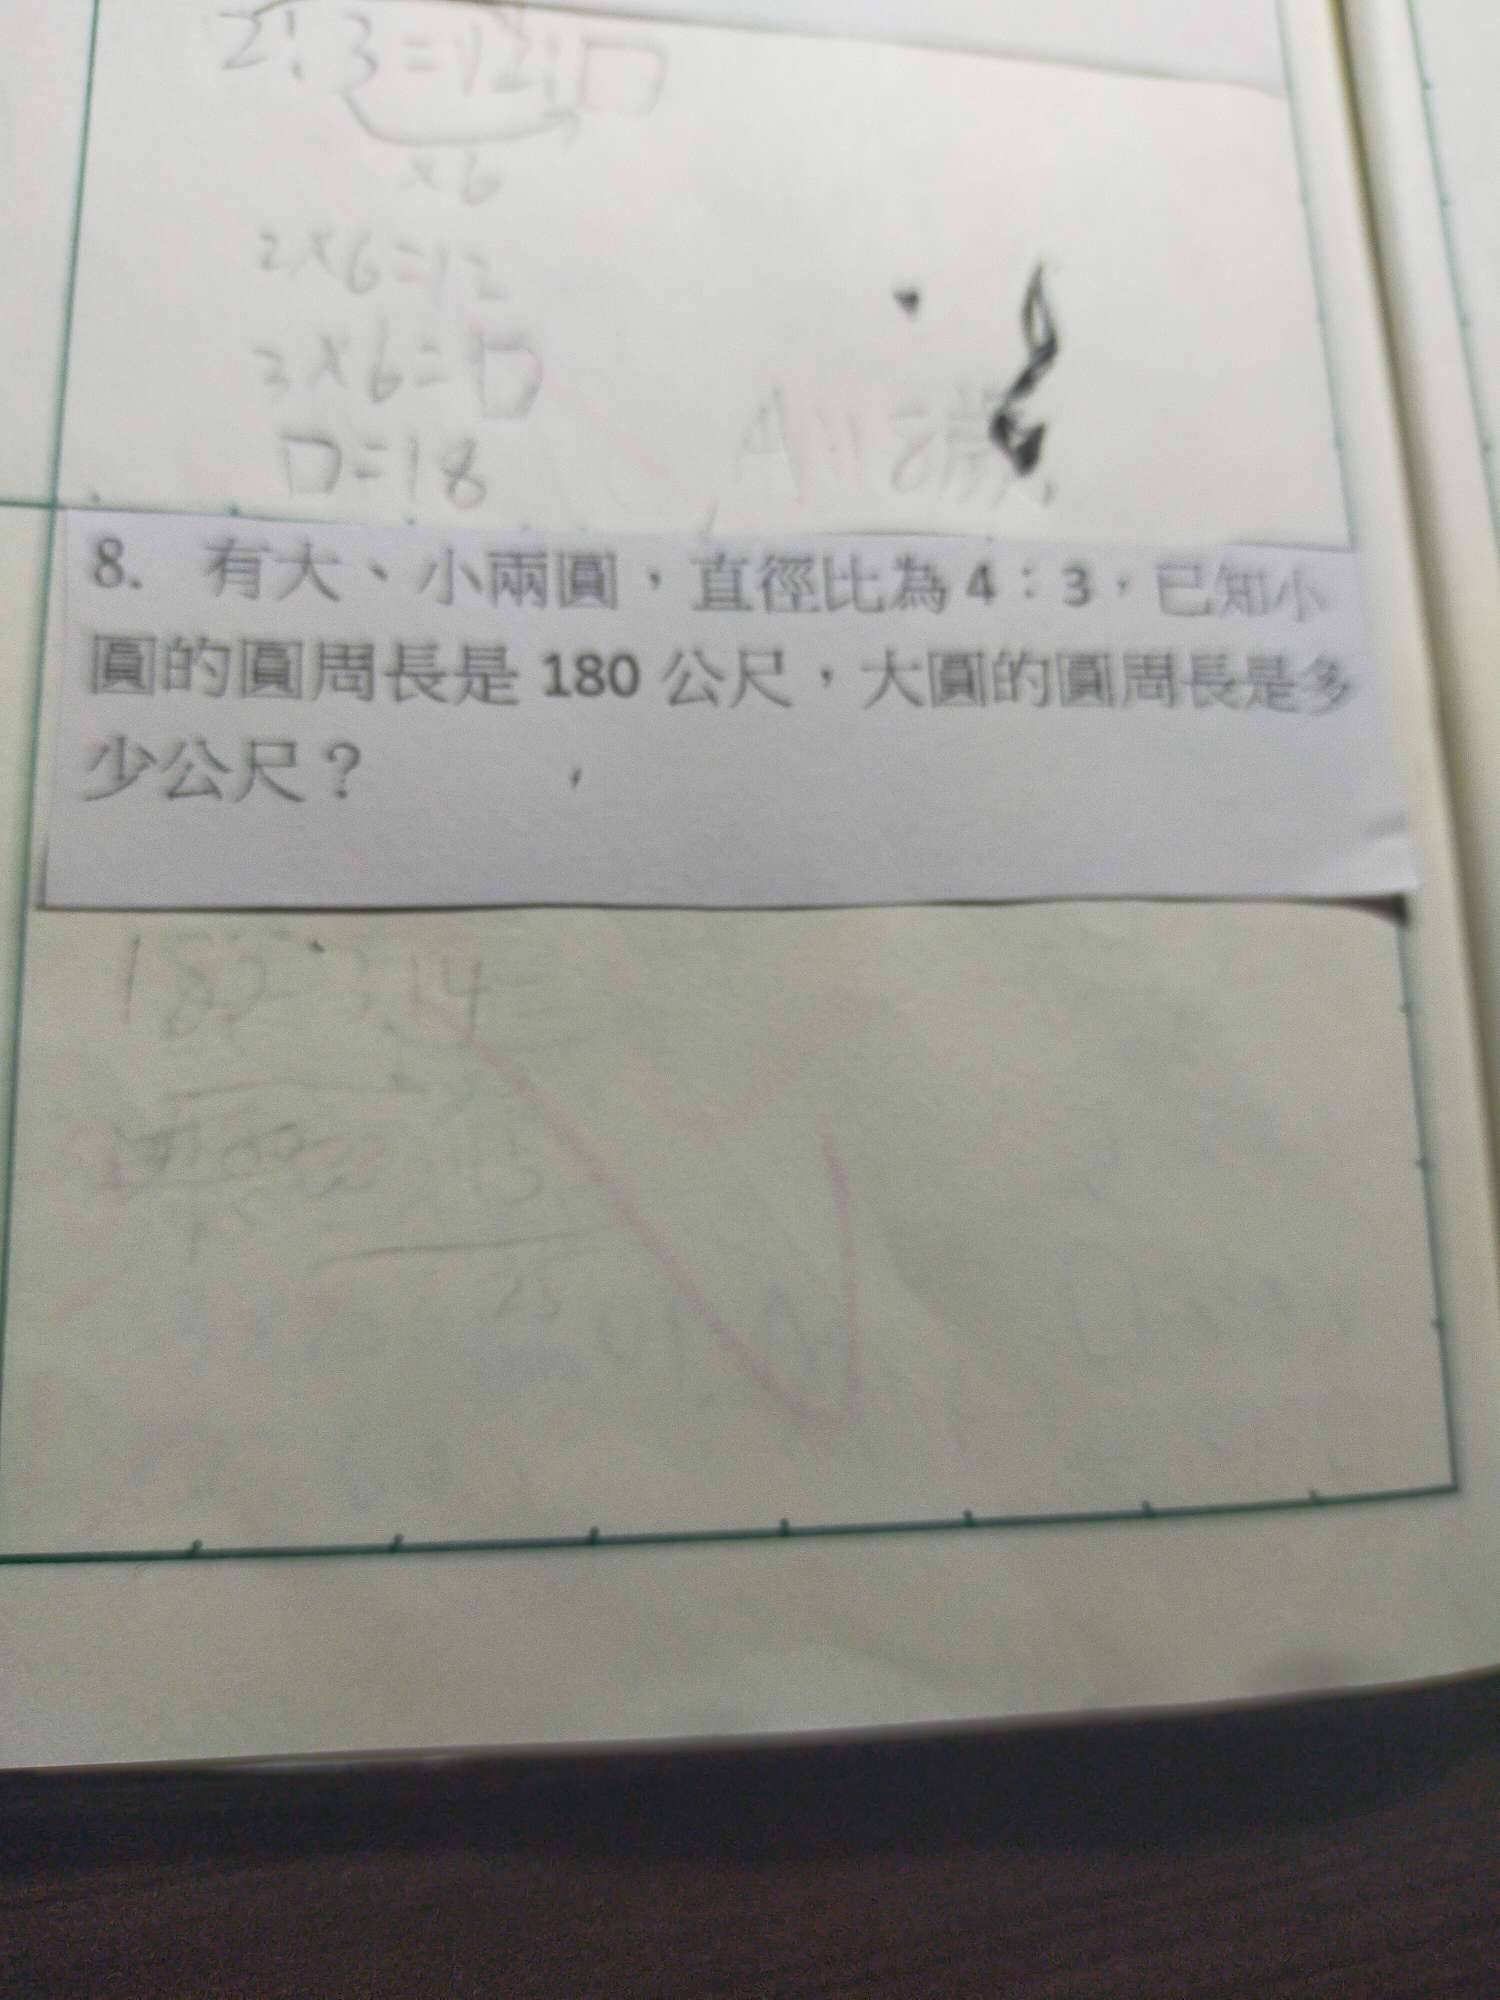 2:3=12:□
×6
2×6=12
3×6=□
□=18
A:18歲
8. 有大、小兩圓，直徑比為 4：3，已知小
圓的圓周長是 180 公尺，大圓的圓周長是多
少公尺？